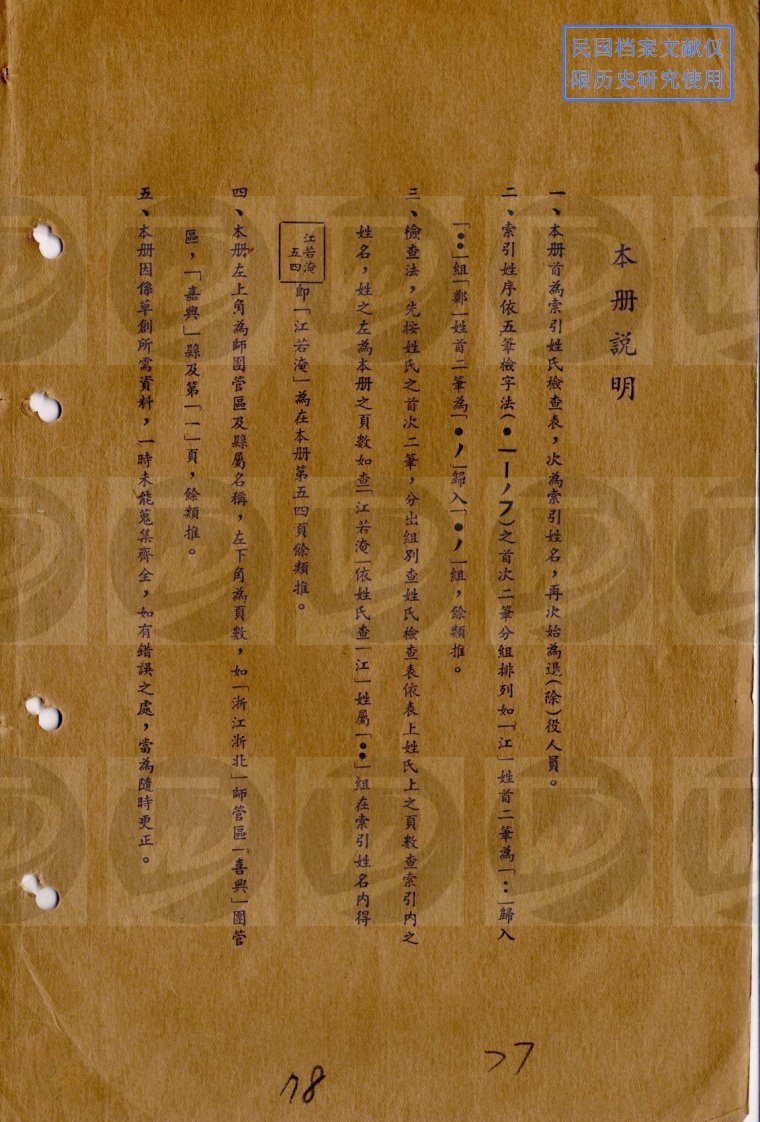 民国档案文献仅
限历史研究使用
本册説明
一、本册首為索引姓氏檢查表，次為索引姓名，再次始為退(除)役人員。
二、索引姓序依五筆檢字法(•一丨丿フ)之首次二筆分組排列如「江」姓首二筆為「：」歸入
「：」組「鄭」姓首二筆為「•丿」歸入「•丿」組，餘類推。
三、檢查法，先按姓氏之首次二筆，分出組別查姓氏檢查表依表上姓氏上之頁數查索引内之
姓名，姓之左為本册之頁數如查「江若淹」依姓氏查「江」姓屬「：」組在索引姓名内得
江若淹
五四
即「江若淹」為在本册第五四頁餘類推。
四、本册左上角為師團管區及縣屬名稱，左下角為頁數，如「浙江浙北」師管區「喜興」團管
區，「嘉興」縣及第「一」頁，餘類推。
五、本册因係草創所需資料，一時未能蒐集齊全，如有錯誤之處，當為隨時更正。
78
77